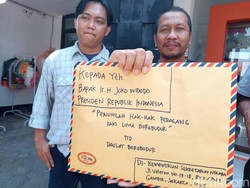 KEPADA YTH.
BAPAK IR. H. JOKO WIDODO
PRESIDEN REPUBLIK INDONESIA
"PENUHILAH HAK-HAK PEDAGANG
KAKI LIMA BOROBUDUR"
TTD
DAULAT BOROBUDUR
DI. KEMENTERIAN SEKRETARIAT NEGARA
JL. VETERAN NO. 17-18,
GAMBIR, JAKARTA